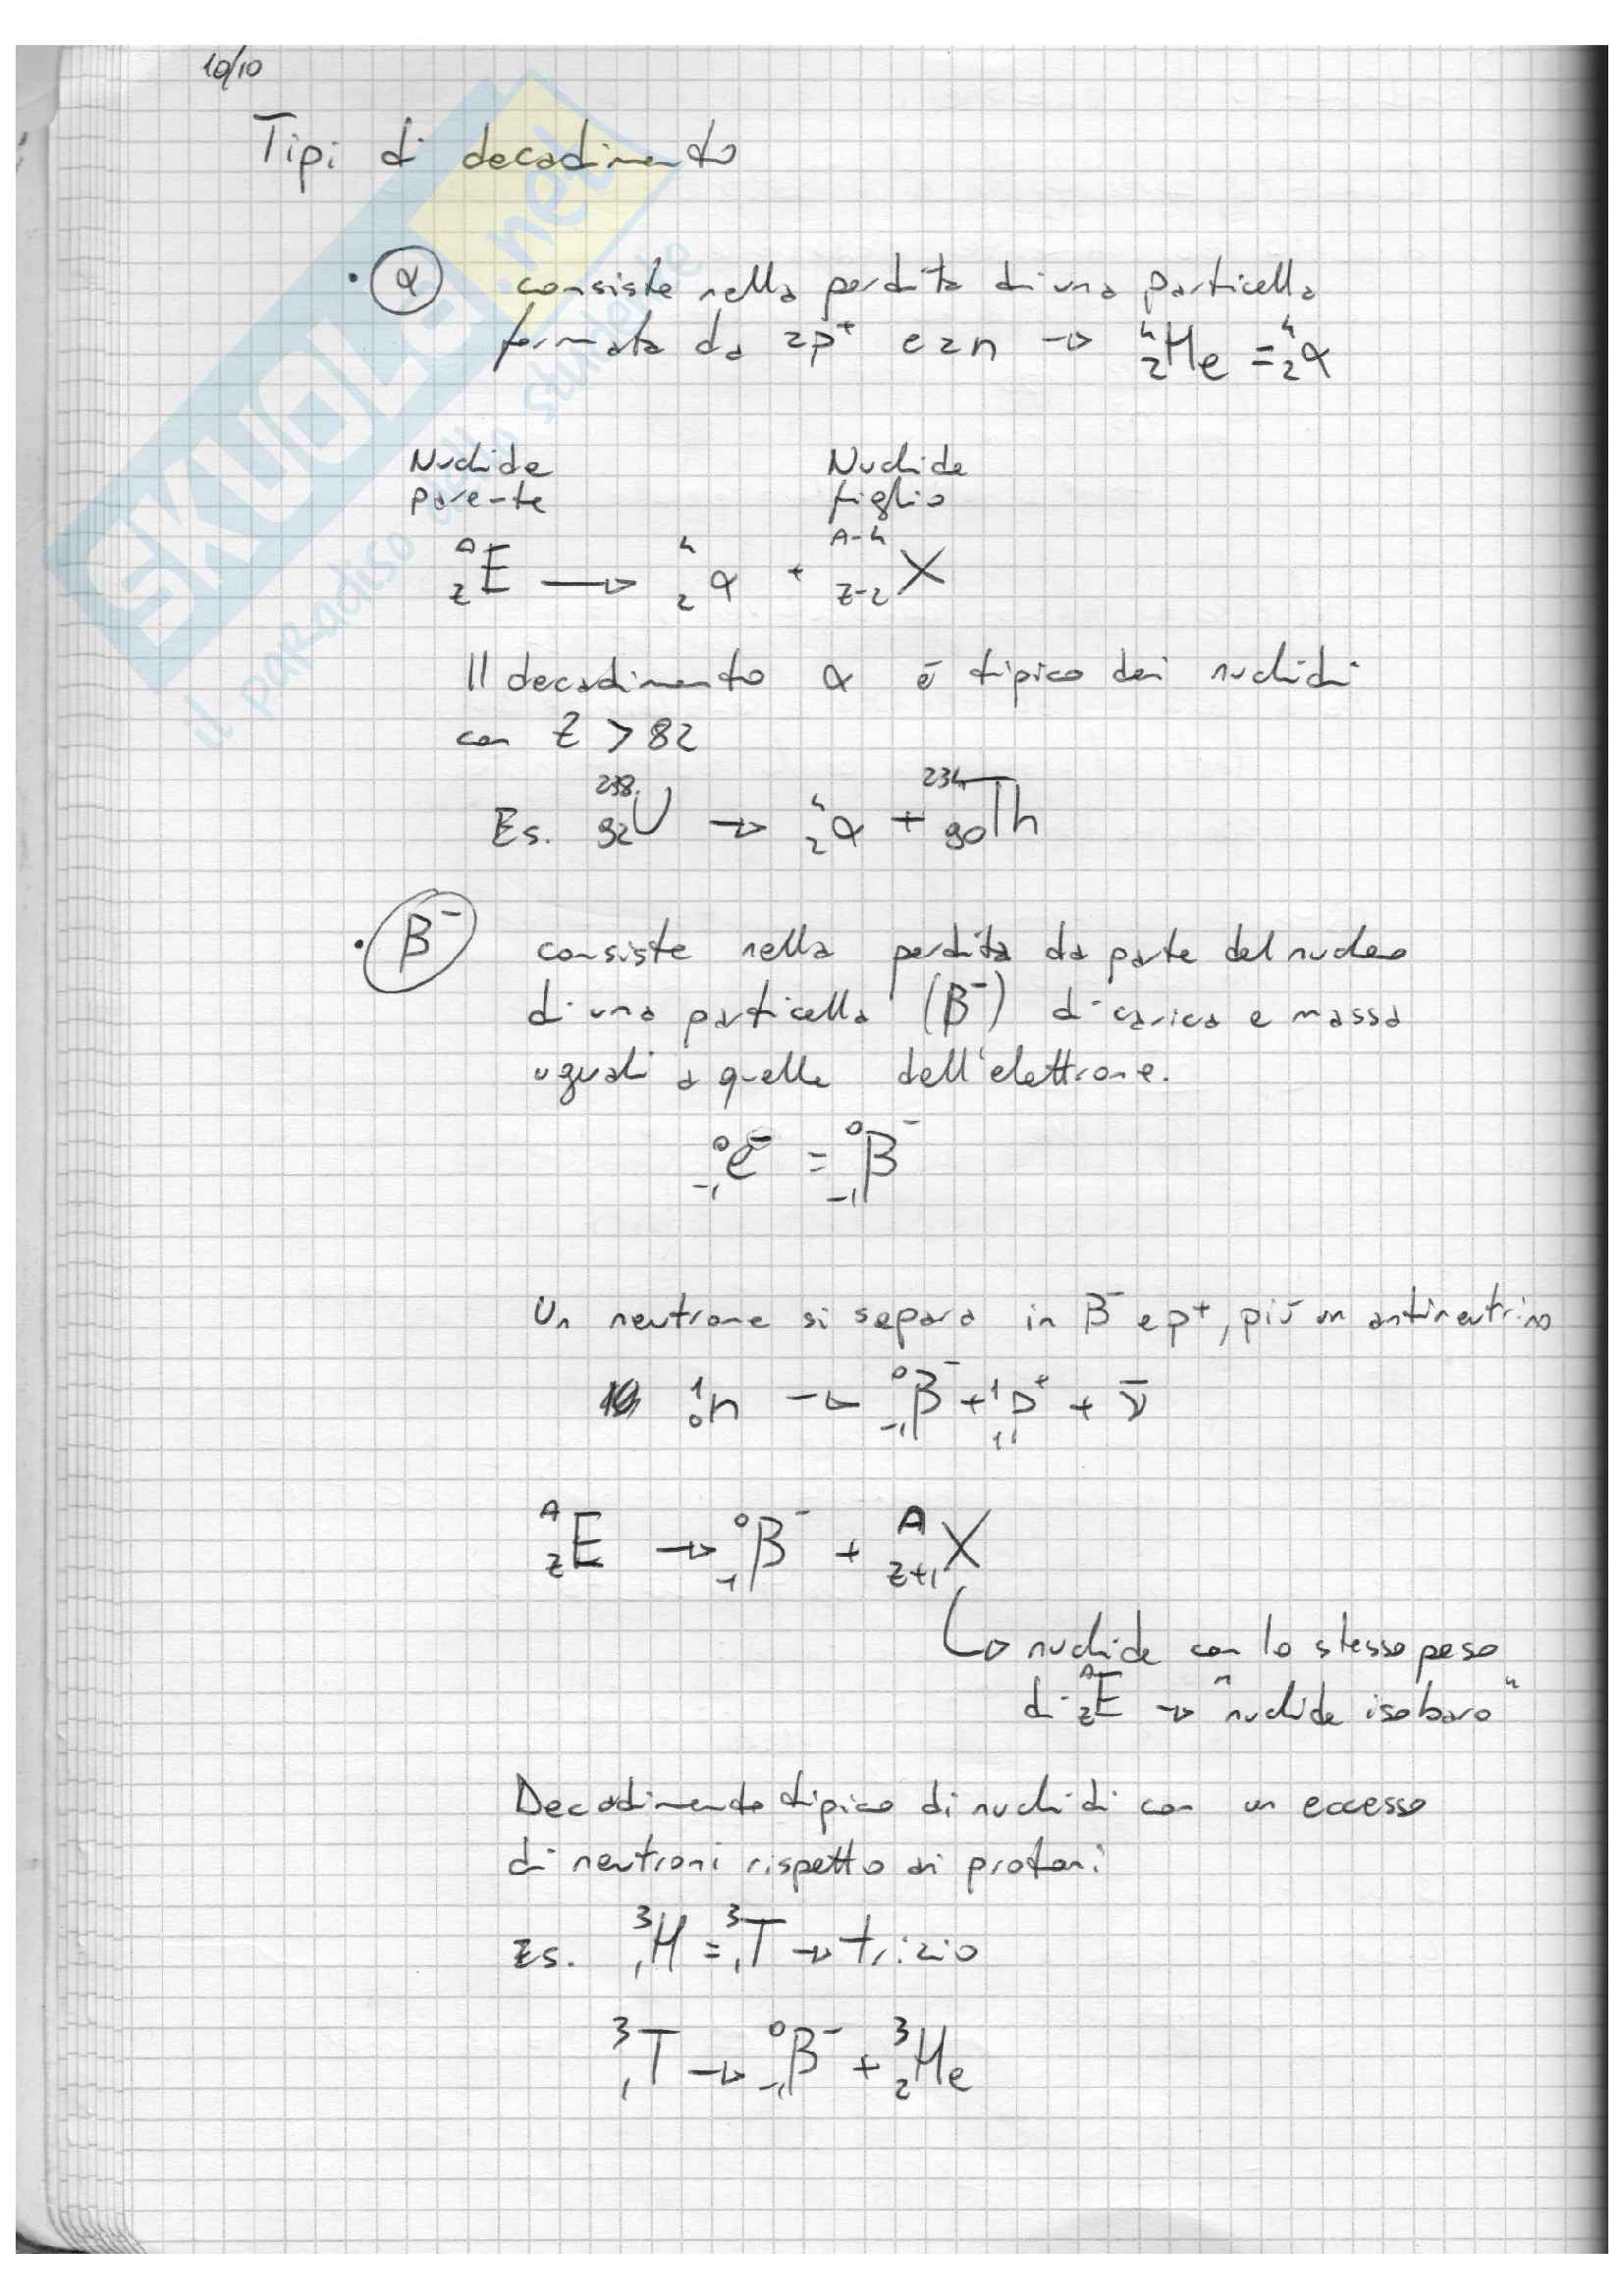 10/10
Tipi di decadimento
SKUOLA.net
il paradiso dello studente
• α consiste nella perdita di una particella
formata da 2p⁺ e 2n → ⁴₂He = ⁴₂α
Nuclide Nuclide
parente figlio
ᴬ_Z E → ⁴₂α + ᴬ⁻⁴_Z-2 X
Il decadimento α è tipico dei nuclidi
con Z > 82
Es. ²³⁸₉₂U → ⁴₂α + ²³⁴₉₀Th
• β⁻ consiste nella perdita da parte del nucleo
di una particella (β⁻) di carica e massa
uguali a quelle dell'elettrone.
⁰₋₁e⁻ = ⁰₋₁β⁻
Un neutrone si separa in β⁻ e p⁺, più un antineutrino
¹₀n → ⁰₋₁β⁻ + ¹₁p⁺ + ν̄
ᴬ_Z E → ⁰₋₁β⁻ + ᴬ_Z+1 X
↳ nuclide con lo stesso peso
di ᴬ_Z E → "nuclide isobaro"
Decadimento tipico di nuclidi con un eccesso
di neutroni rispetto ai protoni
Es. ³₁H = ³₁T → trizio
³₁T → ⁰₋₁β⁻ + ³₂He